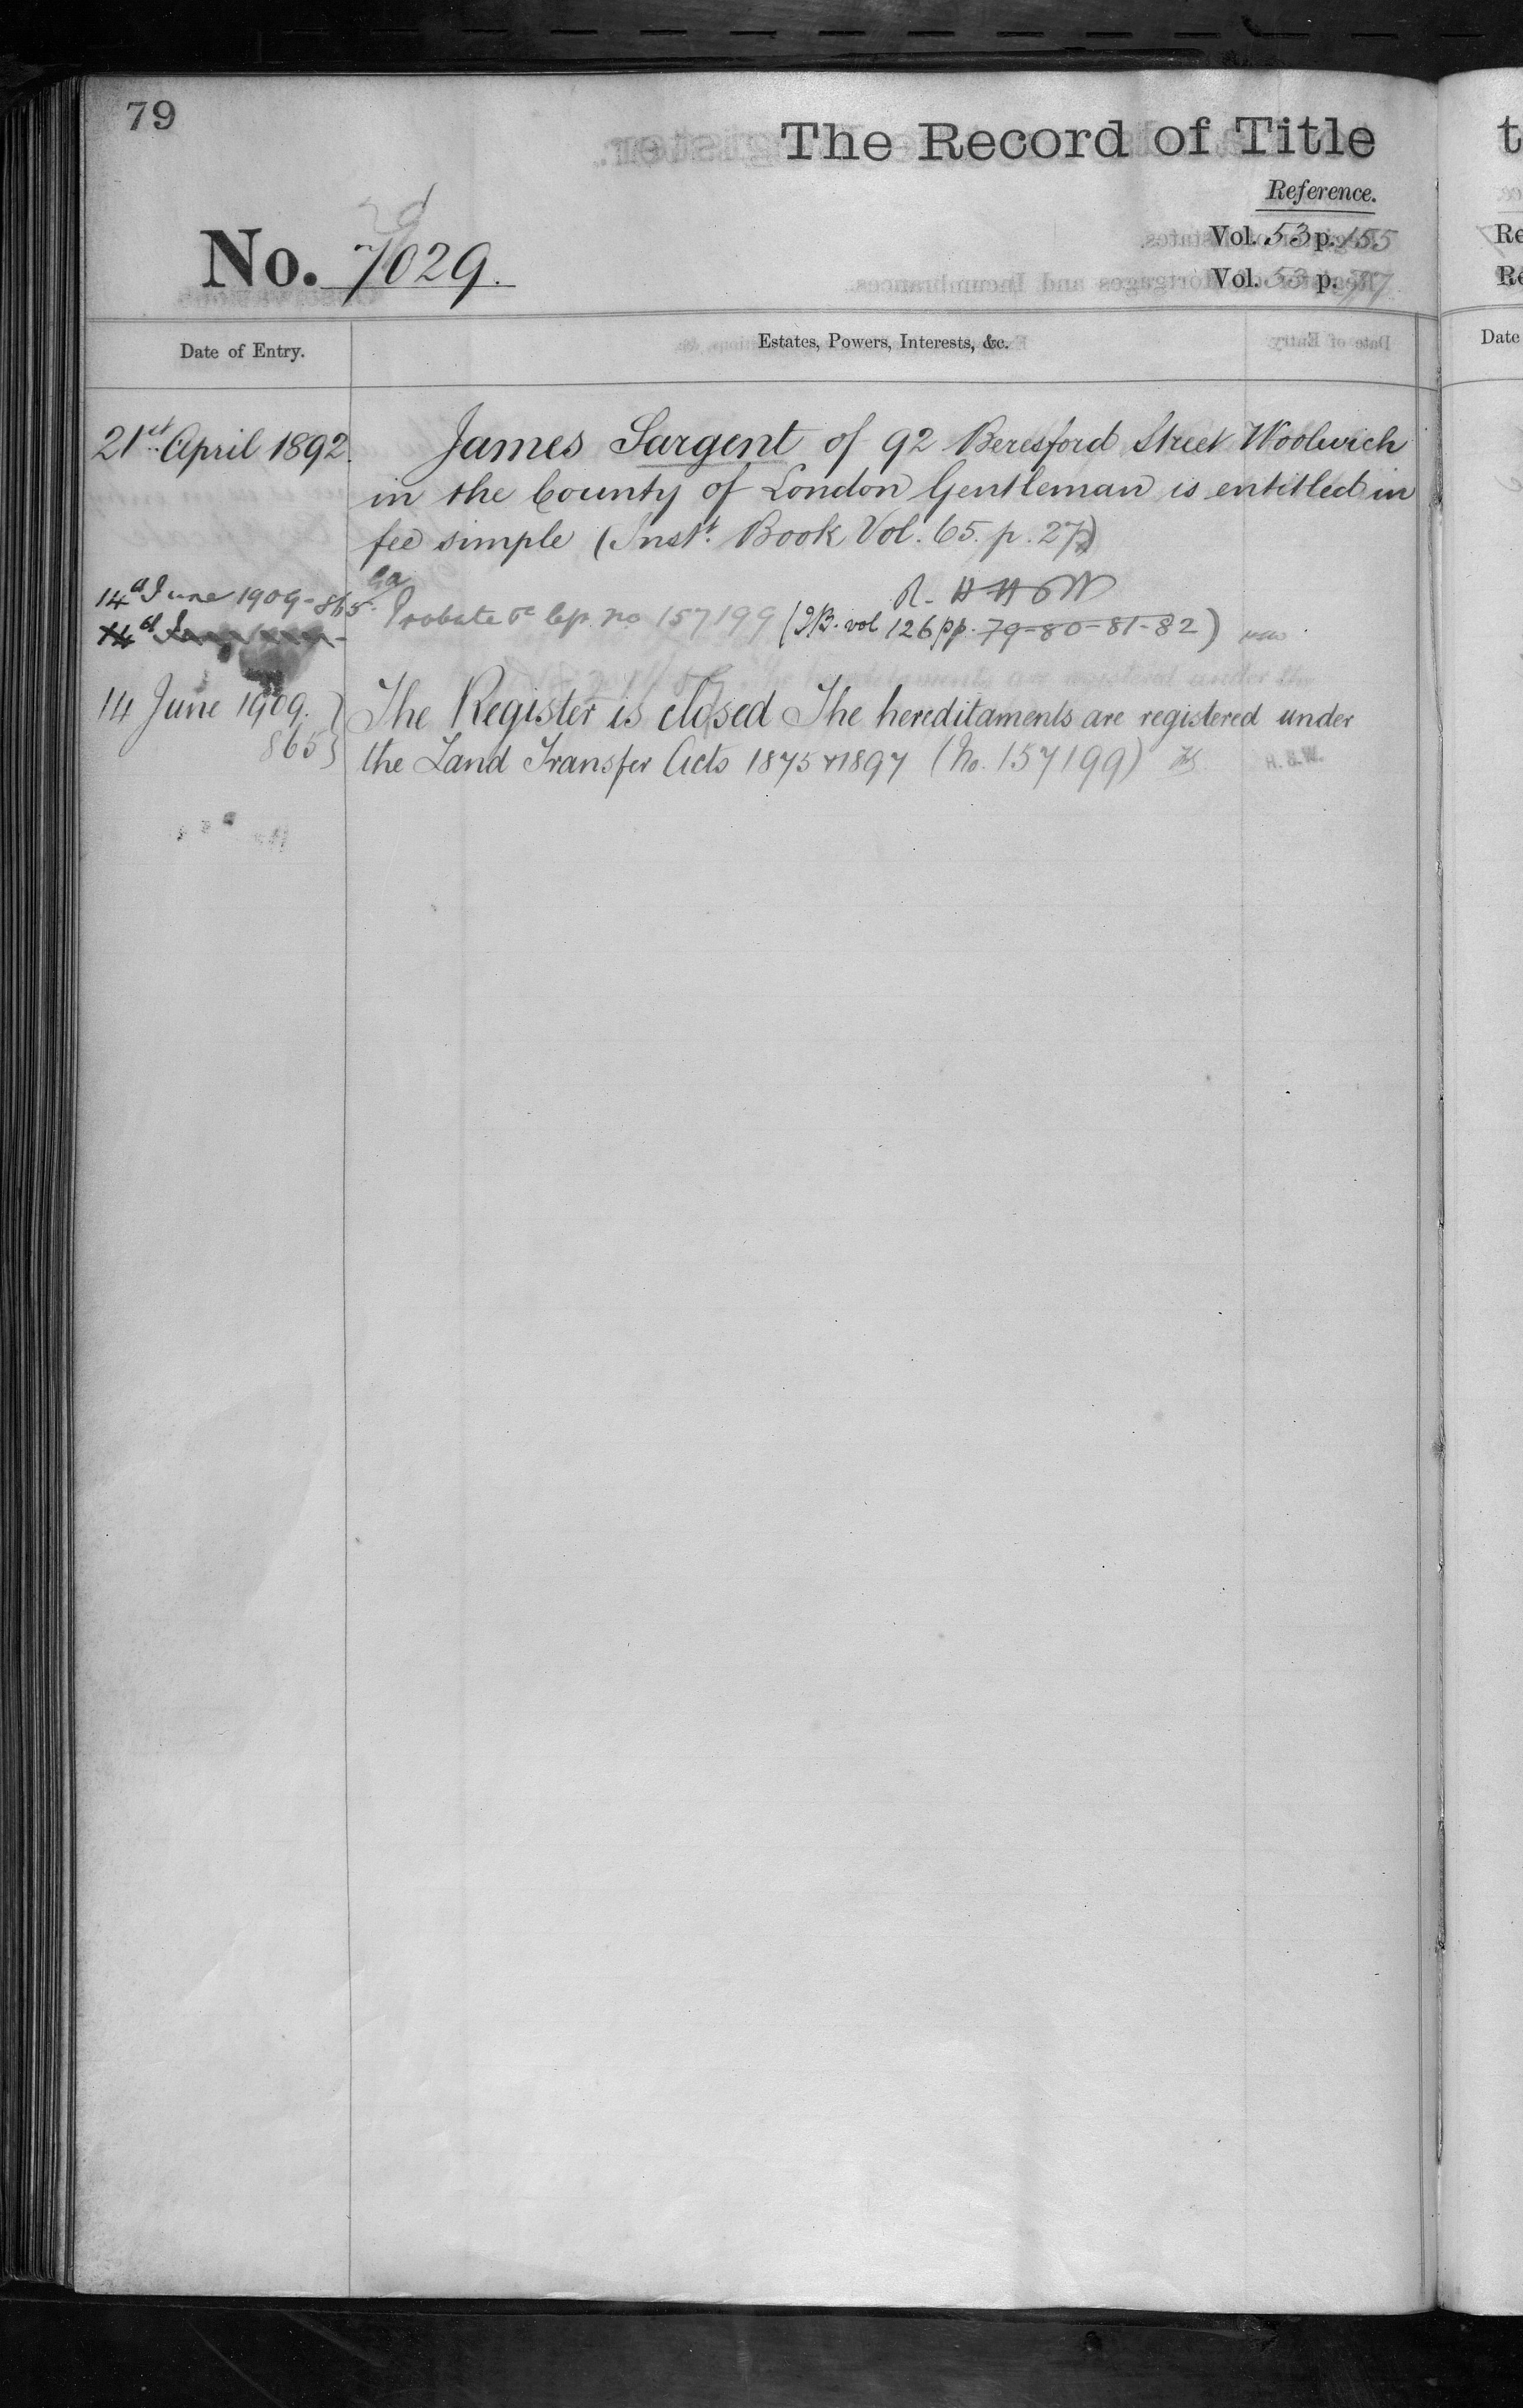 79
The Record of Title
Reference.
No. 7029.
Vol. 53 p. 155
Vol. 53 p.
Date of Entry.
Estates, Powers, Interests, &c.
21st April 1892.
James Sargent of 92 Beresford Street Woolwich
in the County of London Gentleman is entitled in
fee simple (Inst. Book Vol. 65. p. 27)
14 June 1909-865
Probate no 157199 (I.B. vol 126 pp. 79-80-81-82)
14 June 1909.
865
The Register is closed The hereditaments are registered under
the Land Transfer Acts 1875 & 1897 (No. 157199)
t
Re
Re
Date